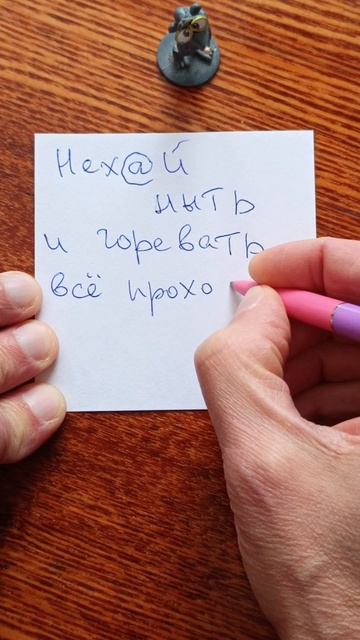 Нех@й
ныть
и горевать
всё прохо